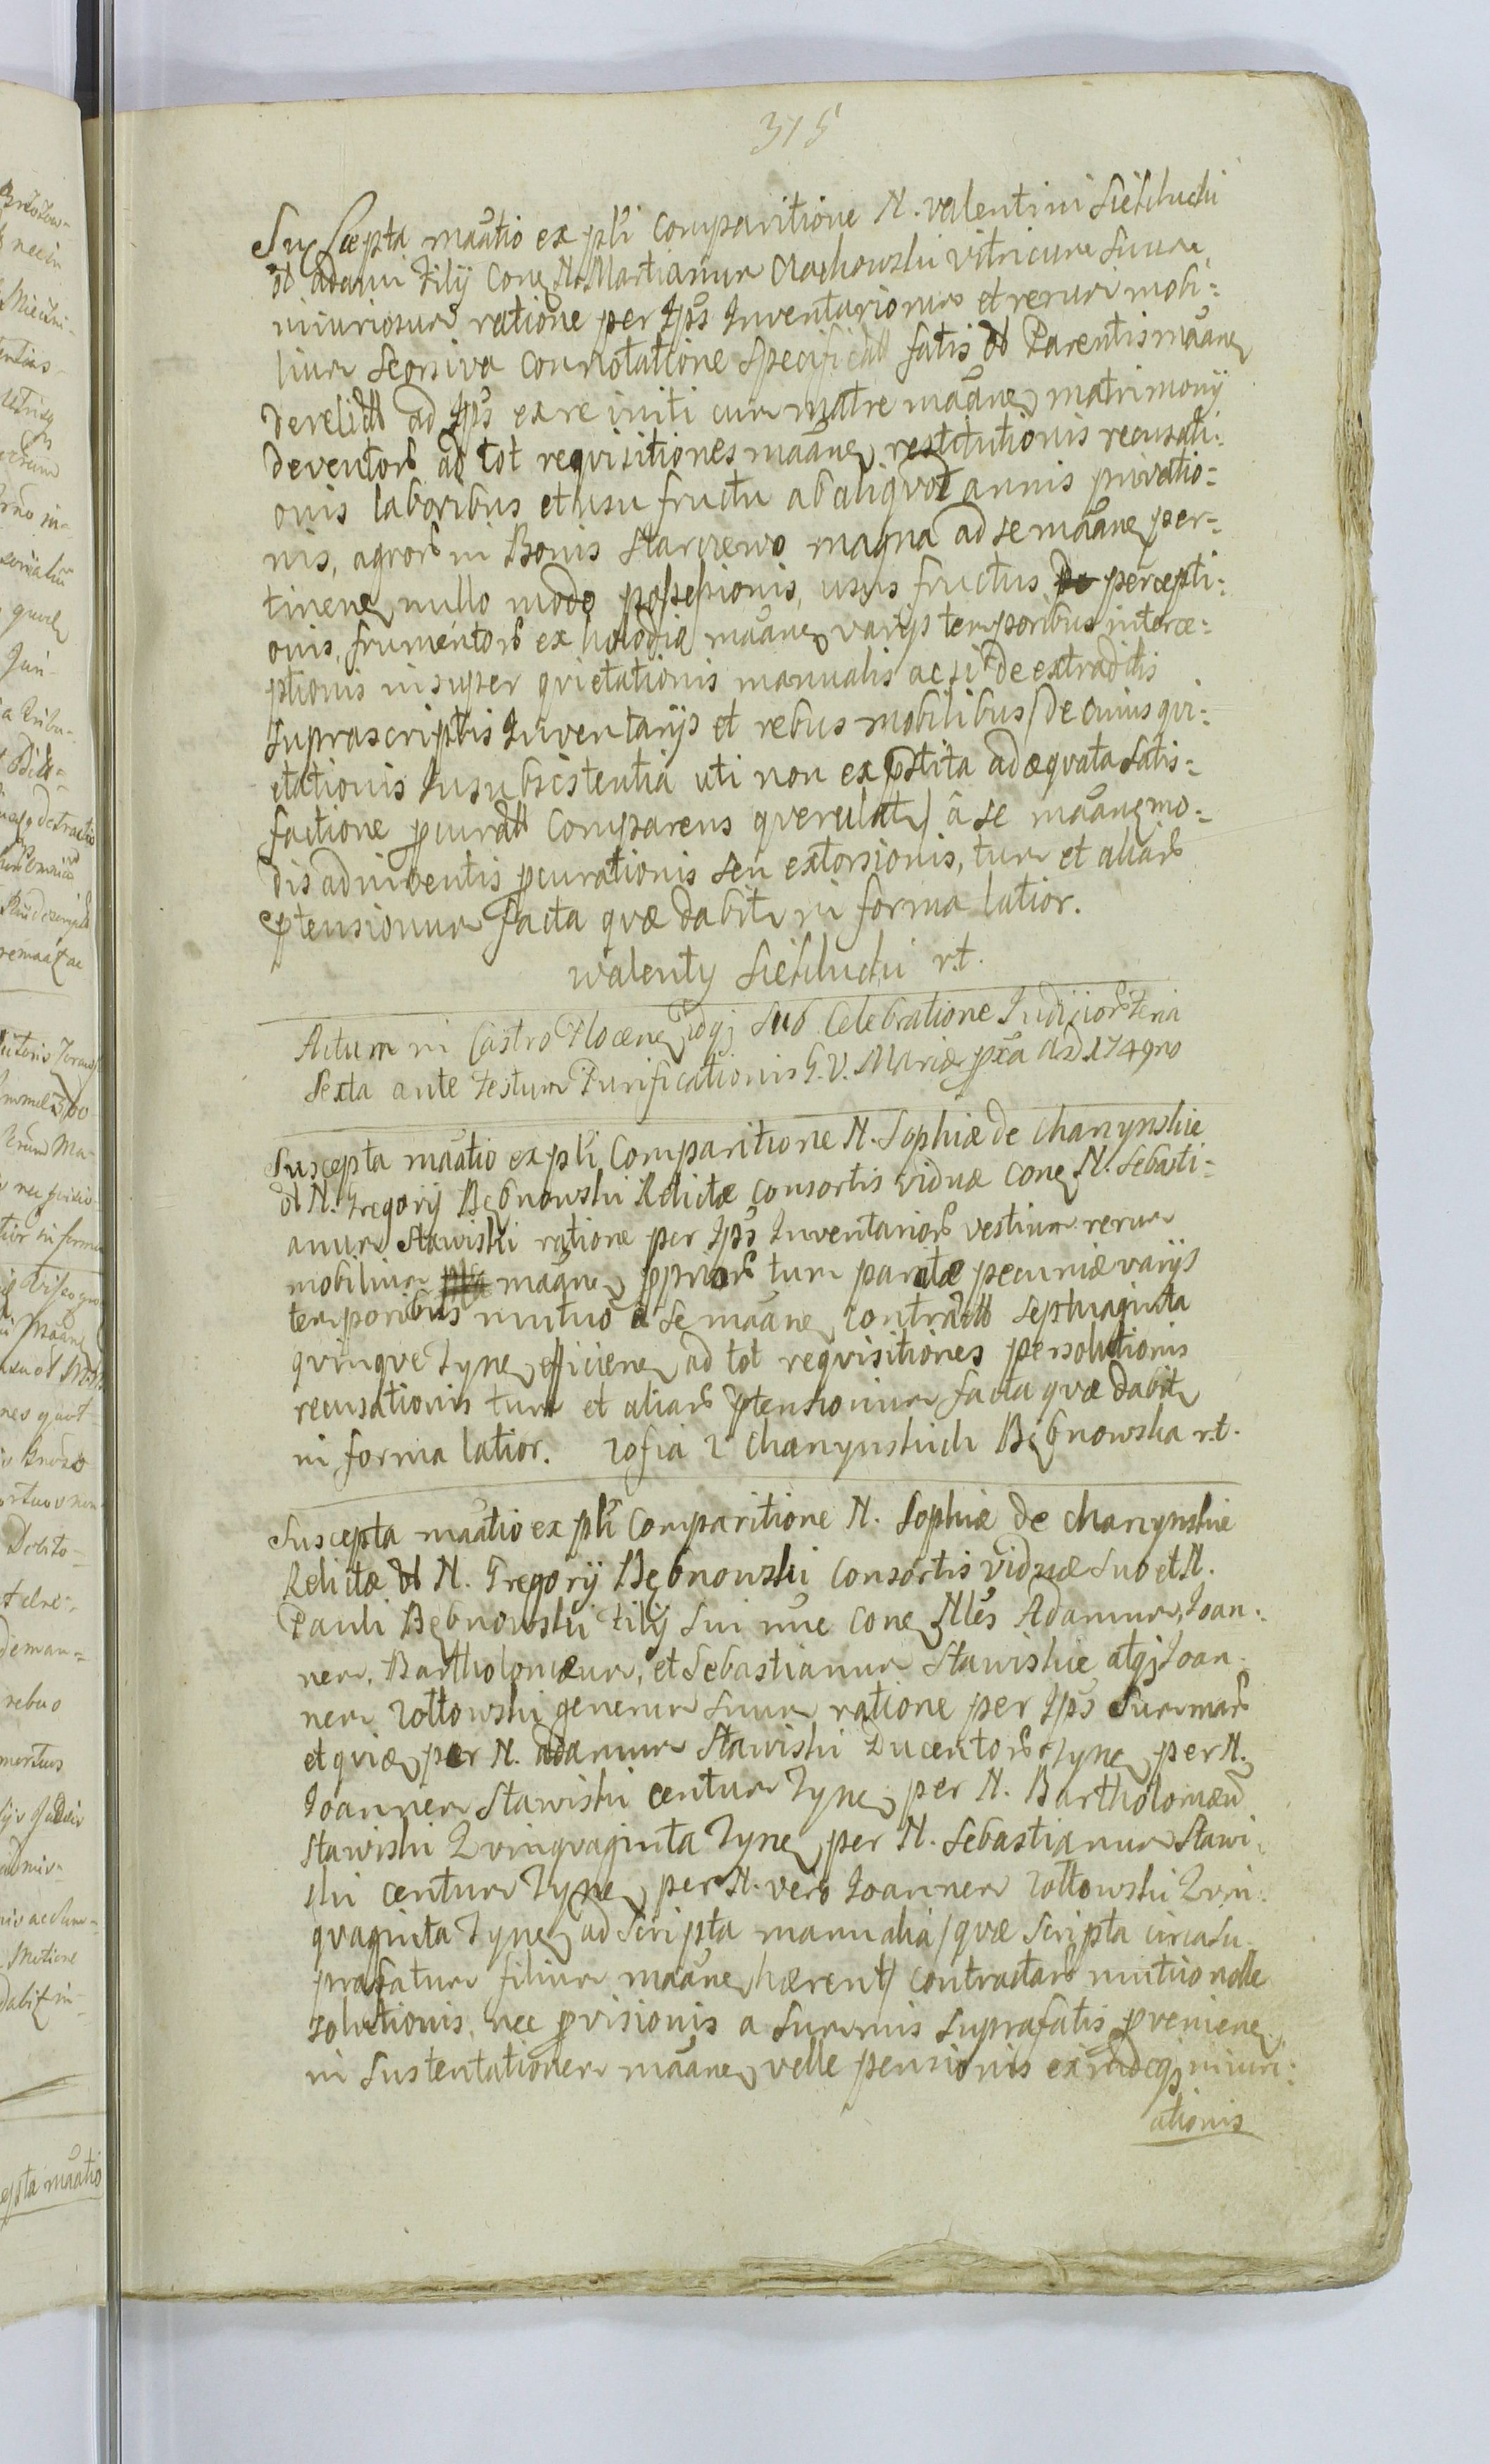 315
Suscepta maãtio ex pñli Comparitione N. Valentini Siekluchi
ol Adami Filij Conq N. Martianum Clachowski Vitricum Suum,
iniuriosum ratione per Ips Inventariorum et rerum mobi=
lium Seorsiva Connotatione Specificatt fatis ol Parentis maãne
Derelictt ad Ips ex re initi cum matre maãne matrimonij
Deventor ad tot requisitiones maãne restitutionis recusati=
onis laboribus et usu fructu ab aliqvot annis privatio=
nis, agror in Bonis Starzewo magna ad se maãne per=
tinene nullo modo possessionis, usus fructus percepti=
onis, frumentor ex maãne varijs temporibus interce=
ptionis insuper qvietationis manualis acsi de extraditis
Suprascriptis Inventarijs et rebus mobilibus /De cuius qvi=
etationis Insubsistentia uti non expstita adæqvata Satis=
factione pcuratt Comparens qverulat/ â se maãne mo=
dis adinventis pcurationis seu extorsionis, tum et aliar
ptensionum facta qvæ dabit in forma latior.
Walenty Siekluchi r.t.
Actum in Castro Plocen Idqj Sub Celebratione Iudicior Feria
Sexta ante Festum Purificationis B.V. Mariæ pxa AD 1749no
Suscepta maãtio ex pñli Comparitione N. Sophiæ de Charzynskie
ol N. Gregorij Bębnowski Relictæ Consortis Viduæ Cone N. Sebasti=
anum Stawiski ratione per Ips Inventarior Vestium rerum
mobilium maãne pprior tum paratæ pecuniæ varijs
temporibus mutuo a se maãne Contractt Septuaginta
qvinqve Tyne efficiene ad tot requisitiones persolutionis
recusationis tum et aliar ptensionum facta qvæ dabit
in forma latior. Zofia z Charzynskich Bębnowska r.t.
Suscepta maãtio ex pñli Comparitione N. Sophiæ de Charzynskie
Relictæ ol N. Gregorij Bębnowski Consortis Viduæ Suo et N.
Pauli Bębnowski Filij Sui nne Cone Nles Adamum, Joan=
nem, Bartholomæum, et Sebastianum Stawiskie atqj Joan=
nem Zołtowski generum Suum ratione per Ips Summar
et qviæ per N. Adamum Stawiski Ducentor Tyne per N.
Joannem Stawiski centum Tyne per N. Bartholomæũ
Stawiski Qvinqvaginta Tyne per N. Sebastianum Stawi=
ski centum Tyne per N. vero Joannem Zołtowski Qvin=
qvaginta Tyne ad Scripta manualia /qvæ Scripta circa Su=
prafatum filium maãne hærent/ Contractar mutuo nolle
Solutionis, nec pvisionis a Summis Suprafatis pveniene
in Sustentationem maãne velle pensionis exindeqj iniuri=
ationis